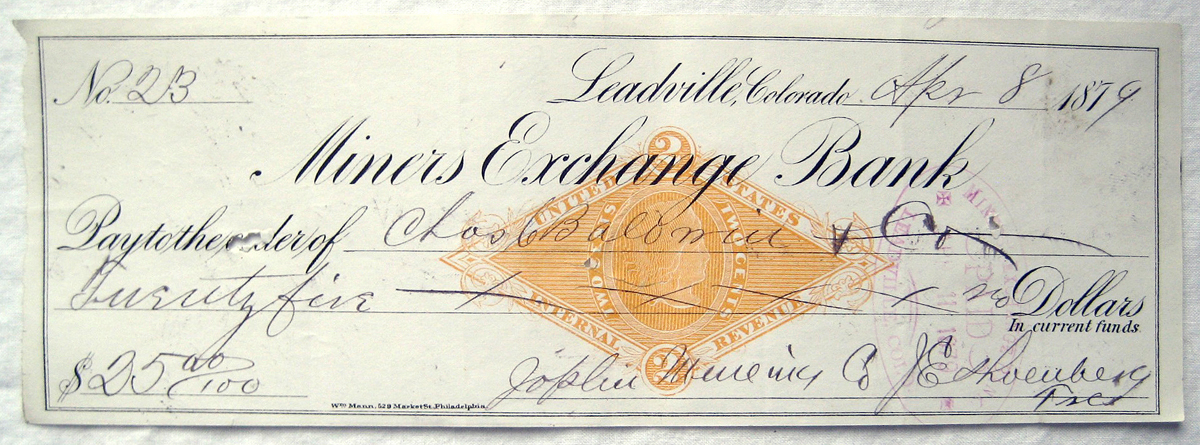 No. 23
Leadville, Colorado Apr 8 1879
Miners Exchange Bank
Pay to the order of Chas Baldwin & Co
Twenty five no Dollars
In current funds
$25 00/100
Joplin Mineing Co J E Shoenberg
Tres
Wm Mann, 529 Market St. Philadelphia
2
UNITED STATES
TWO CENTS
TWO CENTS
INTERNAL REVENUE
2
PAID